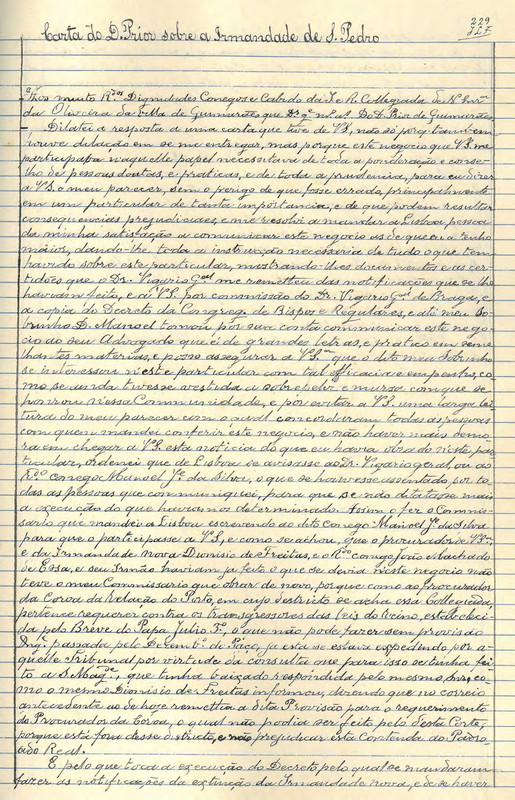 229
Carta do D. Prior sobre a Irmandade de S. Pedro
Aos muito R.dos Dignidades Conegos e Cabido da I. e R. Collegiada de N. Snr.ª
da Oliveira da Villa de Guimarães que D.s g.e m.s a.s Do D. Prior de Guimarães.
Dilatei a resposta a uma carta que tive de V.S., não só porq. tambem
houve dilação em se me entregar, mas porque este negocio que V.S. me
participava naquelle papel necessitava de toda a ponderação e conse-
lho de pessoas doutas, e praticas, e de toda a prudencia, para eu dizer
a V.S. o meu parecer, sem o perigo de que fosse errado, principalmente
em um particular de tanta importancia, e de que podem resultar
consequencias prejudiciaes, e me resolvi a mandar a Lisboa pessoa
da minha satisfação a communicar este negocio as de quem a tenho
maior, dando-lhe toda a instrucção necessaria de tudo o que tem
havido sobre este particular, mostrando-lhes documentos e as cer-
tidões que o Dr. Vigario G.al me remetteu das notificações que se lhe
haviam feito, e a V.S. por commissão do Dr. Vigario G.al de Braga, e
a copia do Decreto da Congreg. de Bispos e Regulares, e até meu So-
brinho D. Manoel tomou por sua conta communicar este nego-
cio ao seu Advogado que é de grandes letras, e pratico em seme-
lhantes materias, e posso assegurar a V.S. que o dito meu Sobrinho
se interessou n'este particular com tal efficacia e empenho, co-
mo se ainda tivesse vestida a sobrepeliz e mursa com que se
honrou nessa Communidade, e por evitar a V.S. uma larga lei-
tura do meu parecer com o qual concordaram todas as pessoas
com quem mandei conferir este negocio, e não haver mais demo-
ra em chegar a V.S. esta noticia do que eu havia obrado n'este par-
ticular, ordenei que de Lisboa se avisasse ao Dr. Vigario geral, ou ao
R.do conego Manoel J.e da Silva, o que se houvesse assentado por to-
das as pessoas que communiquei, para que se não dilatasse mais
a execução do que haviamos determinado. Assim o fez o Commis-
sario que mandei a Lisboa escrevendo ao dito Conego Manoel J.e da Silva
para que o participasse a V.S., e como se achou, que o procurador de V.S.
e da Irmandade nova Dionisio de Freitas, e o R.do conego João Machado
de Eça, e seu Irmão haviam ja feito o que se devia n'este negocio não
teve o meu Commissario que obrar de novo, porque como ao procurador
da Coroa da Relação do Porto, em cujo districto se acha essa Collegiada,
pertence requerer contra os transgressores das leis do Reino, estabeleci-
da pelo Breve do Papa Julio 3.º, o que não pode fazer sem provisão
Regi. passada pelo Desemb.º do Paço, ja esta se estava expedindo por a-
quelle Tribunal por virtude da consulta que para isso se tinha fei-
to a S. Mag.de, que tinha baixado respondida pelo mesmo Snr., co-
mo o mesmo Dionisio de Freitas informou, dizendo que no correio
antecedente ao de hoje remettia a dita Provisão para o requerimento
do Procurador da Coroa, o qual não podia ser feito pelo desta Corte,
porque está fora desse districto, e não prejudicar esta contenda ao Padro-
ado Real.
E pelo que toca a execução do Decreto pelo qual se mandaram
fazer as notificações da extinção da Irmandade nova, e de se haver